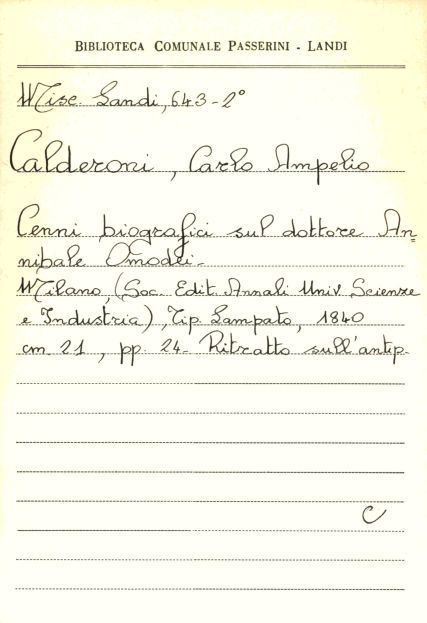 BIBLIOTECA COMUNALE PASSERINI - LANDI
Misc. Landi, 643-2°
Calderoni, Carlo Ampelio
Cenni biografici sul dottore An=
nibale Omodei.-
Milano, (Soc. Edit. Annali Univ. Scienze
e Industria), Tip. Lampato, 1840
cm. 21, pp. 24.- Ritratto sull'antip.
C